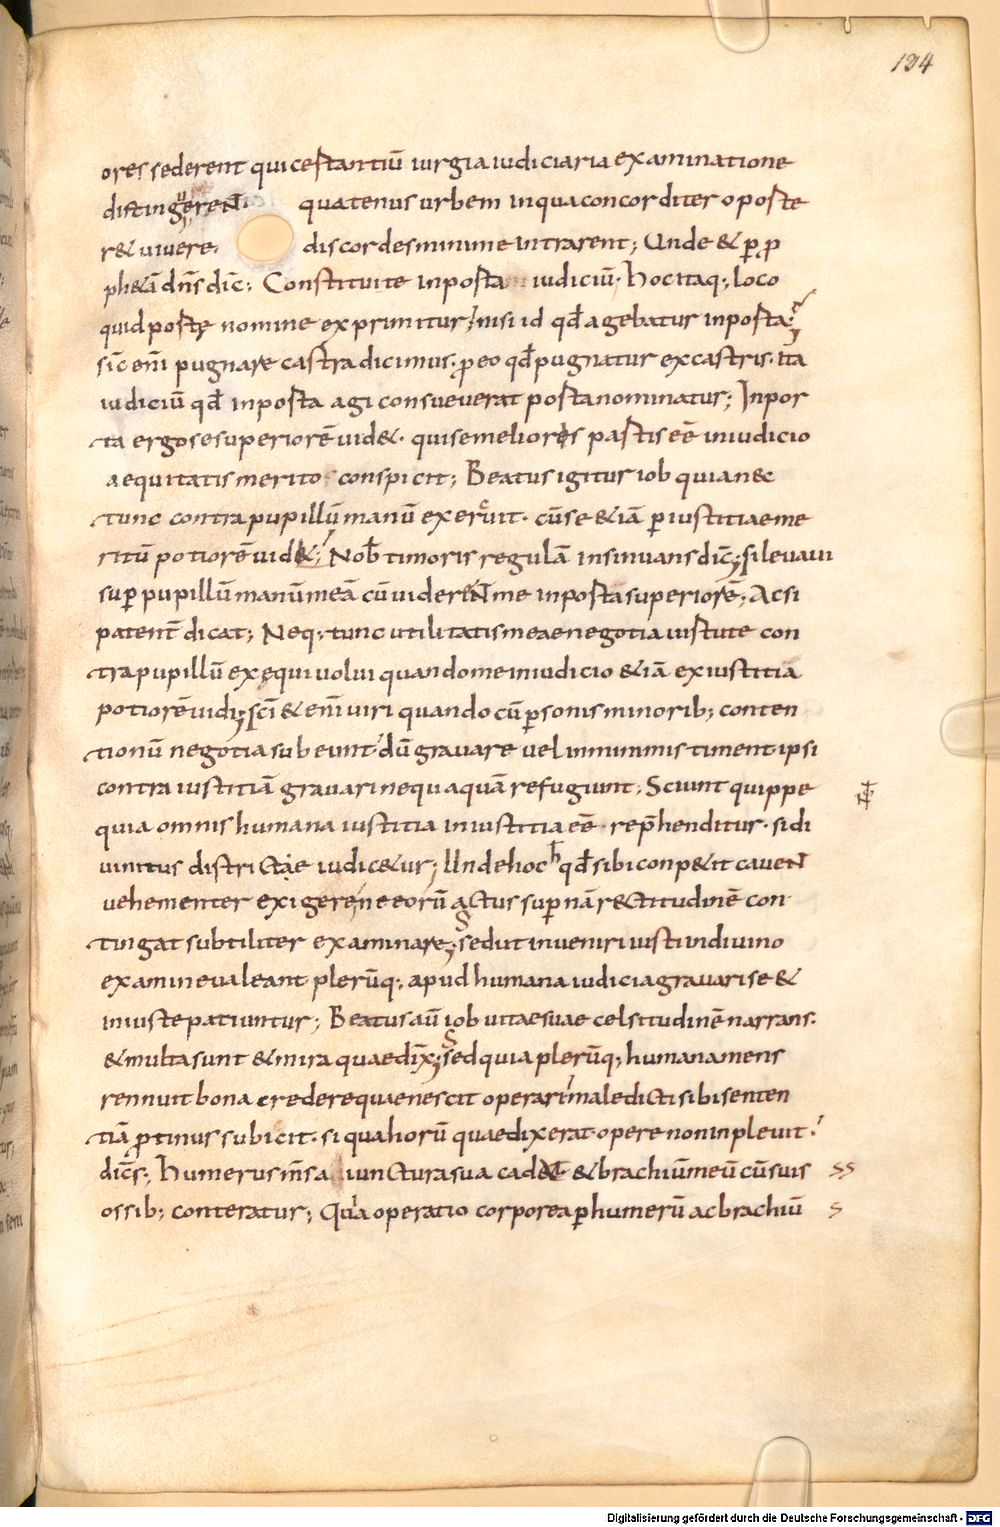 134
ores sederent qui certantiū iurgia iudiciaria examinatione
distingueren̄t· quatenus urbem in qua concorditer oporte
r& uiuere· discordes minime intrarent; Unde & p̱ p̱
ph&ā dn̄s dic̄; Constituite in porta iudiciū· hoc itaq; loco
quid portę nomine exprimitur; nisi id qd̄ agebatur in porta;
sic̄ enī pugnare castra dicimus· ꝓ eo qd̄ pugnatur ex castris· ita
iudiciū qd̄ in porta agi consueverat porta nominatur; In por
ta ergo se superiorē uid&· qui se meliores partis eē in iudicio
aequitatis merito conspicit; Beatus igitur iob quia nec
tunc contra pupillū manū exeruit· cū se &iā ꝑ iustitiae me
ritū potiorē uid&; Nob̄ timoris regulā insinuans dic̄; si levavi
suꝑ pupillū manū meā cū viderēN̄ me in porta superiorē; Ac si
patent̄ dicat; Neq; tunc utilitatis meae negotia iuste con
tra pupillū exequi uolui quando me in iudicio &iā ex iustitia
potiorē uidi; sc̄i & enī uiri quando cū ꝑsonis minorib; conten
tionū negotia subeunt dū gravare vel in minimis timent ipsi
contra iustitiā gravari nequaquā refugiunt; Sciunt quippe
quia omnis humana iustitia iniustitia eē rep̄henditur· si di
vinitus districtae iudic&ur; Unde hoc qd̄ sibi conp&it caveN̄
vehementer exigere; ne eorū actus suꝑnā r&titudinē con
tingat subtiliter examinare; sed ut inveniri iusti in divino
examine valeant plerūq; apud humana iudicia gravari se &
iniuste patiuntur; Beatus aū iob vitae suae celsitudinē narrans·
& multa sunt & mira quae dix̄; sed quia plerūq; humana mens
rennuit bona credere quae nescit operari maledicti sibi senten
tiā ꝓtinus subicit· si qua horū quae dixerat opere non inplevit·
dicēs; humerus m̄s a iunctura sua cadat & brachiū meū cū suis
ossib; conteratur; Quia operatio corporea ꝑ humerū ac brachiū
Digitalisierung gefördert durch die Deutsche Forschungsgemeinschaft - DFG